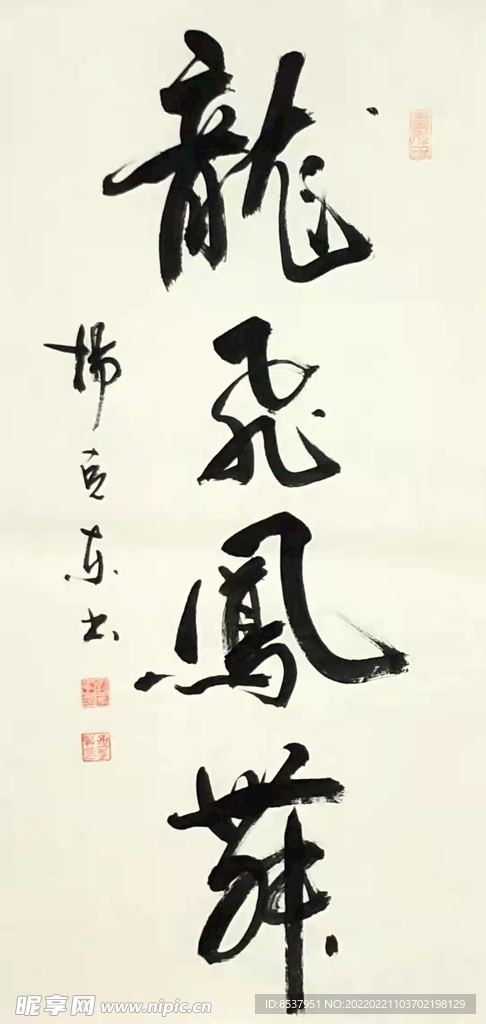 龍飛鳳舞
楊克東书
昵享网 www.nipic.cn
ID:8537951 NO:20220221103702198129